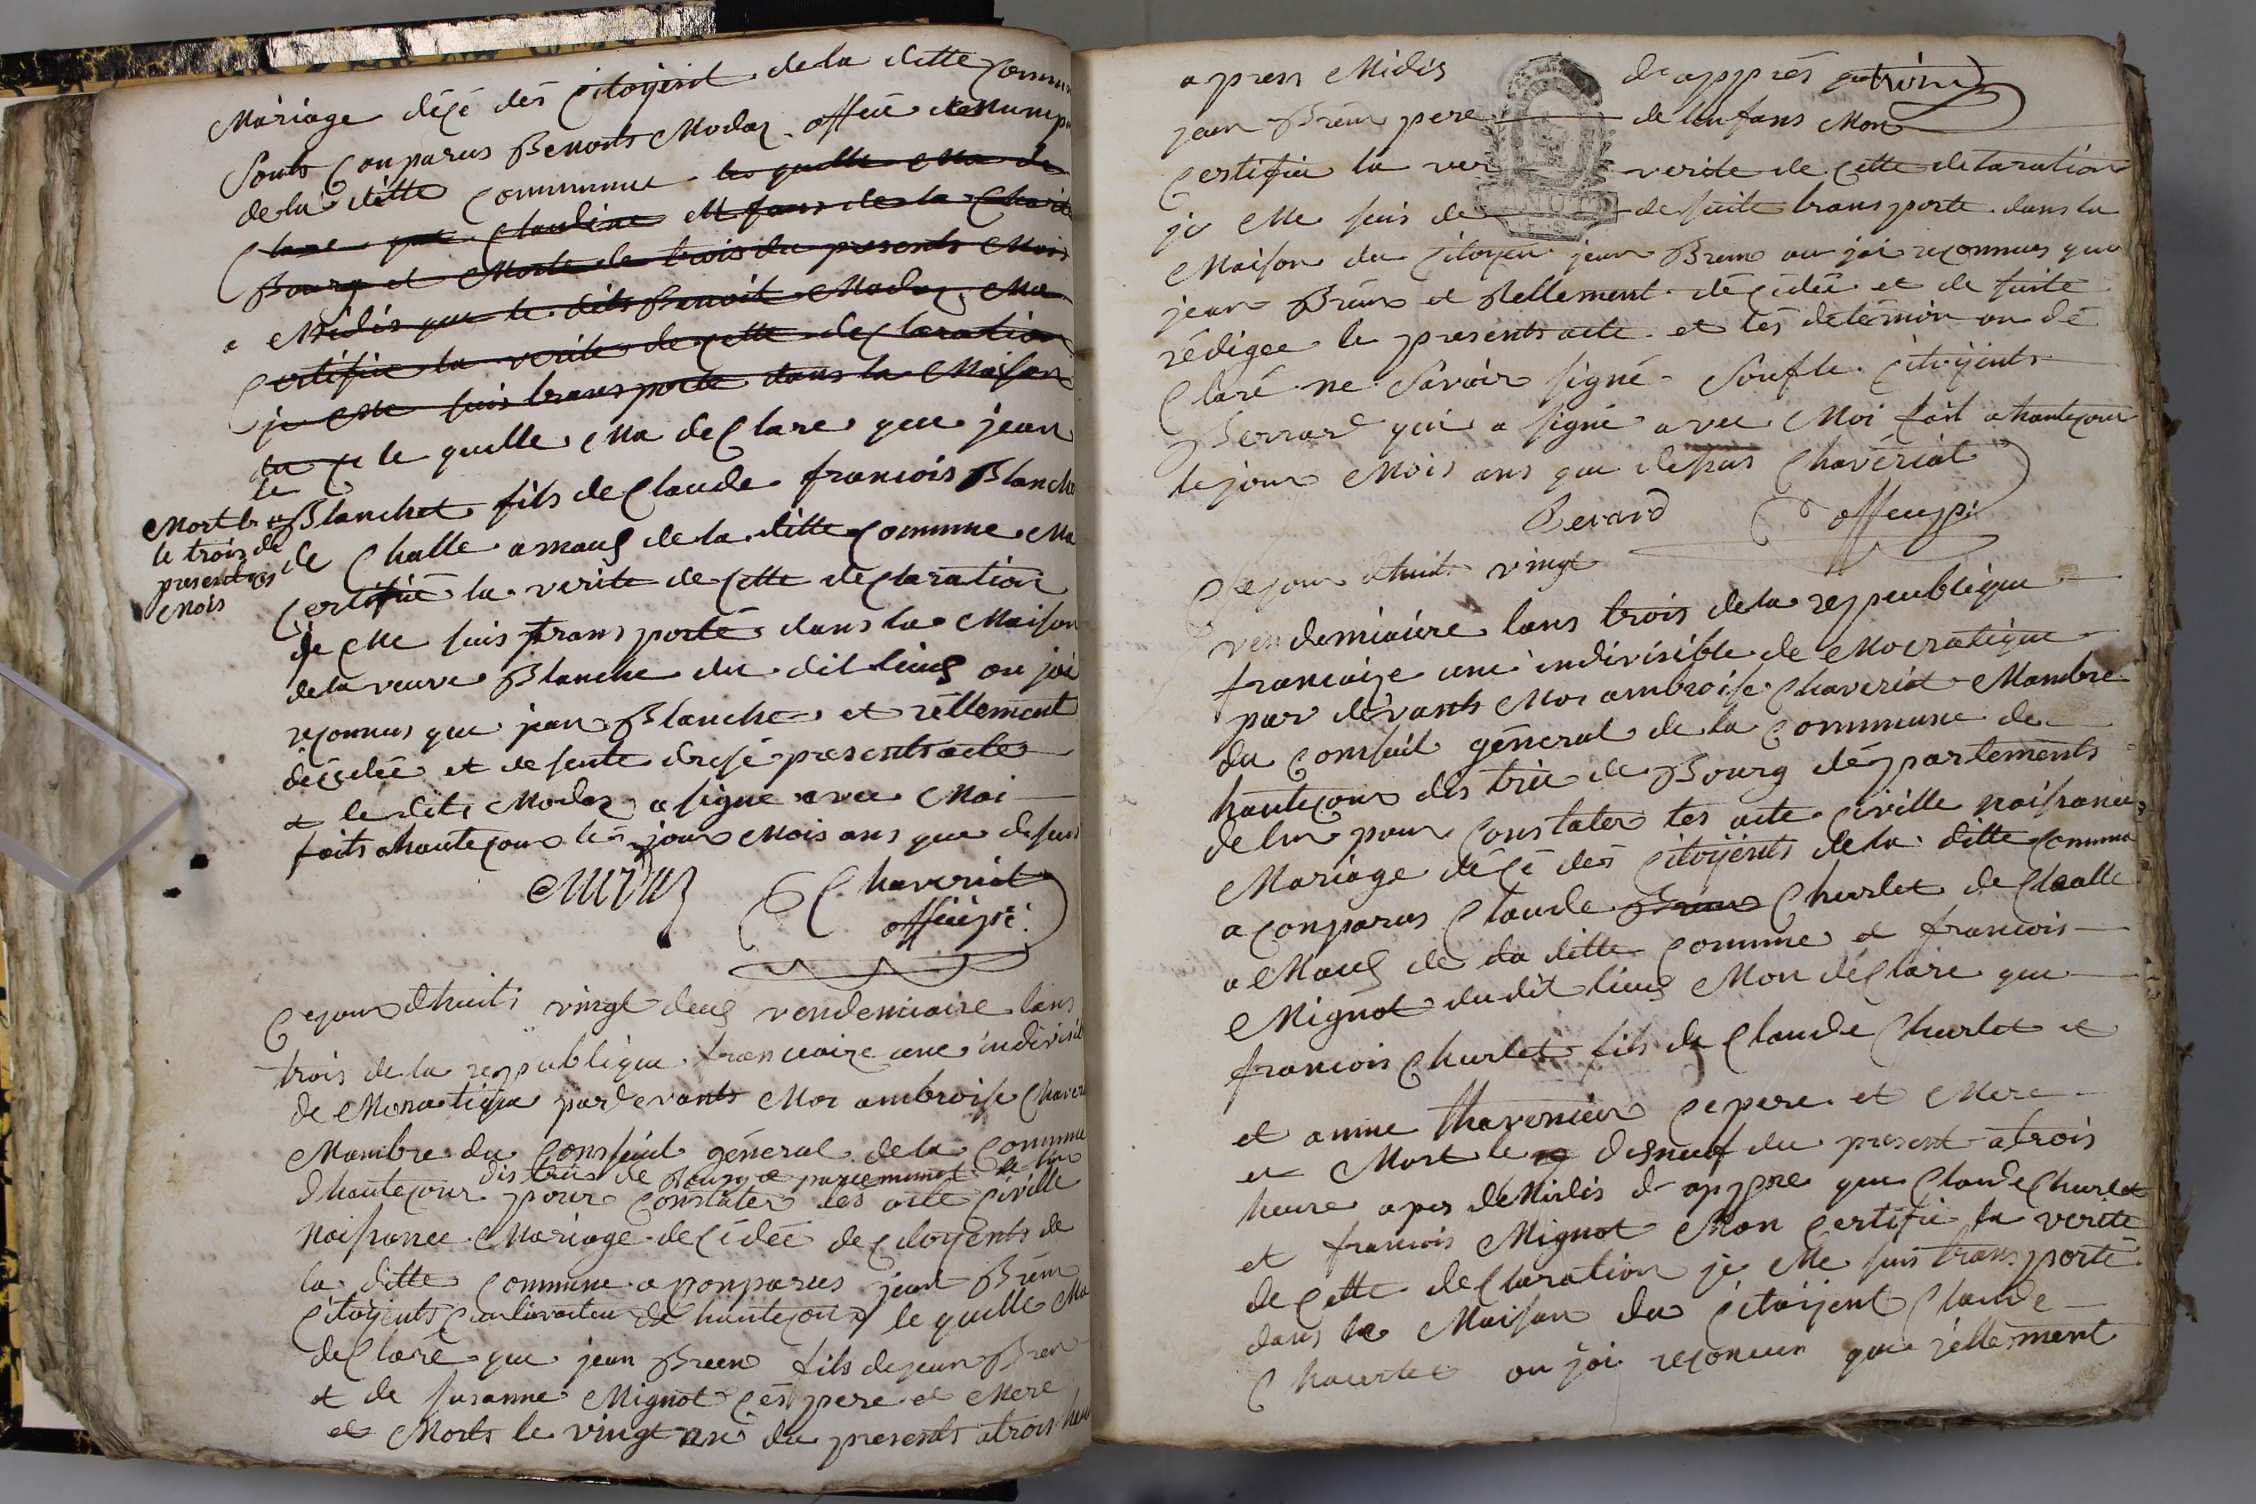 Mariage déçé dés Citoyent de la ditte Commu
Sonts Conparus Benoits Modas offié
de la ditte Commmune les quelle Ma de
Clare que Claudine de la Charit
Bourg et Morte le trois du presents Mois
a Midis que le dits Benoit Modas Ma
Certifié la verite de cette de Claration
je Me suis transporte dans la Maison
du Ci le quelle Ma de Clare que jean
Blanchet fils de Claude francois Blanche
Mort le
le trois de
present
Mois
de Challe a maus de la ditte Commune Ma
Certifié la verite de Cette de Claration
je Me suis trans porté dans la Maison
de la veuve Blanche du dit lieus ou jai
reconnus que jean Blanche et réllement
décédéé et de suite dresé presents acte
et le dits Modas a signe avec Moi
faits a hautecour les jour Mois ans que desus
Chaveriat
offié pu
Ce jour dhuits vingt deus vendemiaire lans
trois de la republique francaize une indivisib
de Mocratique par devants Moi ambroise Chaveri
Mambre du Conseil géneral de la Commune
dis trié de Bourg de partement de lin
dhautecour pour Constater les acte Civille
naissance Mariage de Cidéé de Citoyents de
la ditte Commune a Conparus jean Brém
Citoyents Cultivateur de hautecour le quelle Ma
de Claré que jean Breun fils de jean Bren
et de susanne Mignot Cés pere et Mere
et Morts le vingt un du presents a trois heur
apress Midis de apprés
jean Brém pere de lenfans Mon
Certifié la ver verite de Cette delaration
je Me suis de de suite trans porte dans la
Maison du Citoyen jean Brem ou jai reconnus que
jean Brém et Rellement déCidéé et de suite
rédigee le presents acte et lés detémoin on dé
Claré ne Savoir signé Soufle Citoyents
Berrard qui a signé avec Moi fait a hautecour
le jour Mois ans que de sus Chavériat
Berard offié pu
Ce jour dhuit vingt
vendemiaiere lans trois de la republique
francaize une indivisible de Mocratique
par dévants Moi ambroise Chaveriat Mambre
du Conseil géneral de la Commune de
hautecour dis trié de Bourg départements
de lin pour Constater les acte Civille naissance
Mariage déCé dés Citoyents de la ditte Commune
a Conparus Claude Brem Churlet de Challe
a Maus de la ditte Commune et francois
Mignot du dit lieus Mon déClare que
francois Churlet fils de Claude Churlet et
et anne thavenier Ce pere et Mere
et Mort le disneuf du present a trois
heure apres de Midis d appre que Claude Churlet
et francois Mignot Mon Certifié la verite
de Cette de Claration je Me suis trans porté
dans la Maison du Citoyent Claude
Chaurlet ou jai reconeun que réllement